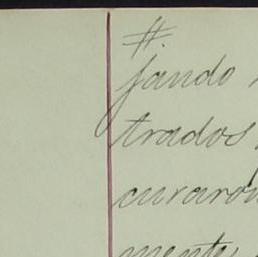 #.
jando
trados
curaron
mente